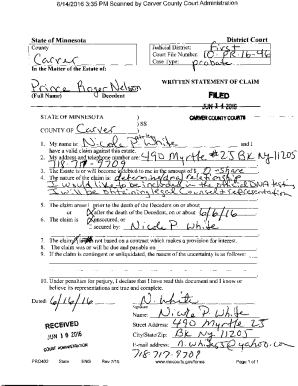 6/14/2016 3:35 PM Scanned by Carver County Court Administration
State of Minnesota District Court
County Judicial District: First
Carver Court File Number: 10-PR-16-46
Case Type: probate
In the Matter of the Estate of:
Prince Roger Nelson WRITTEN STATEMENT OF CLAIM
(Full Name) Decedent
FILED
JUN 14 2016
STATE OF MINNESOTA ) CARVER COUNTY COURTS
) SS
COUNTY OF Carver )
1. My name is: Nicole P White and I
have a valid claim against this estate.
2. My address and telephone number are: 490 Myrtle #2J BK NY 11205
718-717-9709
3. The Estate is or will become indebted to me in the amount of $ share
4. The nature of the claim is: determining relationship
I would like to be included in the official DNA test,
I will be obtaining legal counsel representation
5. The claim arose prior to the death of the Decedent on or about
or after the death of the Decedent, on or about 6/6/16
6. The claim is unsecured, or
secured by: Nicole P White
7. The claim is not based on a contract which makes a provision for interest.
8. The claim was or will be due and payable on
9. If the claim is contingent or unliquidated, the nature of the uncertainty is as follows:
10. Under penalties for perjury, I declare that I have read this document and I know or
believe its representations are true and complete.
Dated: 6/6/16 N. White
Signature
Name: Nicole P White
RECEIVED Street Address: 490 Myrtle 2J
JUN 10 2016 City/State/Zip: BK NY 11205
COURT ADMINISTRATION E-mail address: n.whitejs@yahoo.com
718-717-9709
PRO402 State ENG Rev 7/15 www.mncourts.gov/forms Page 1 of 1